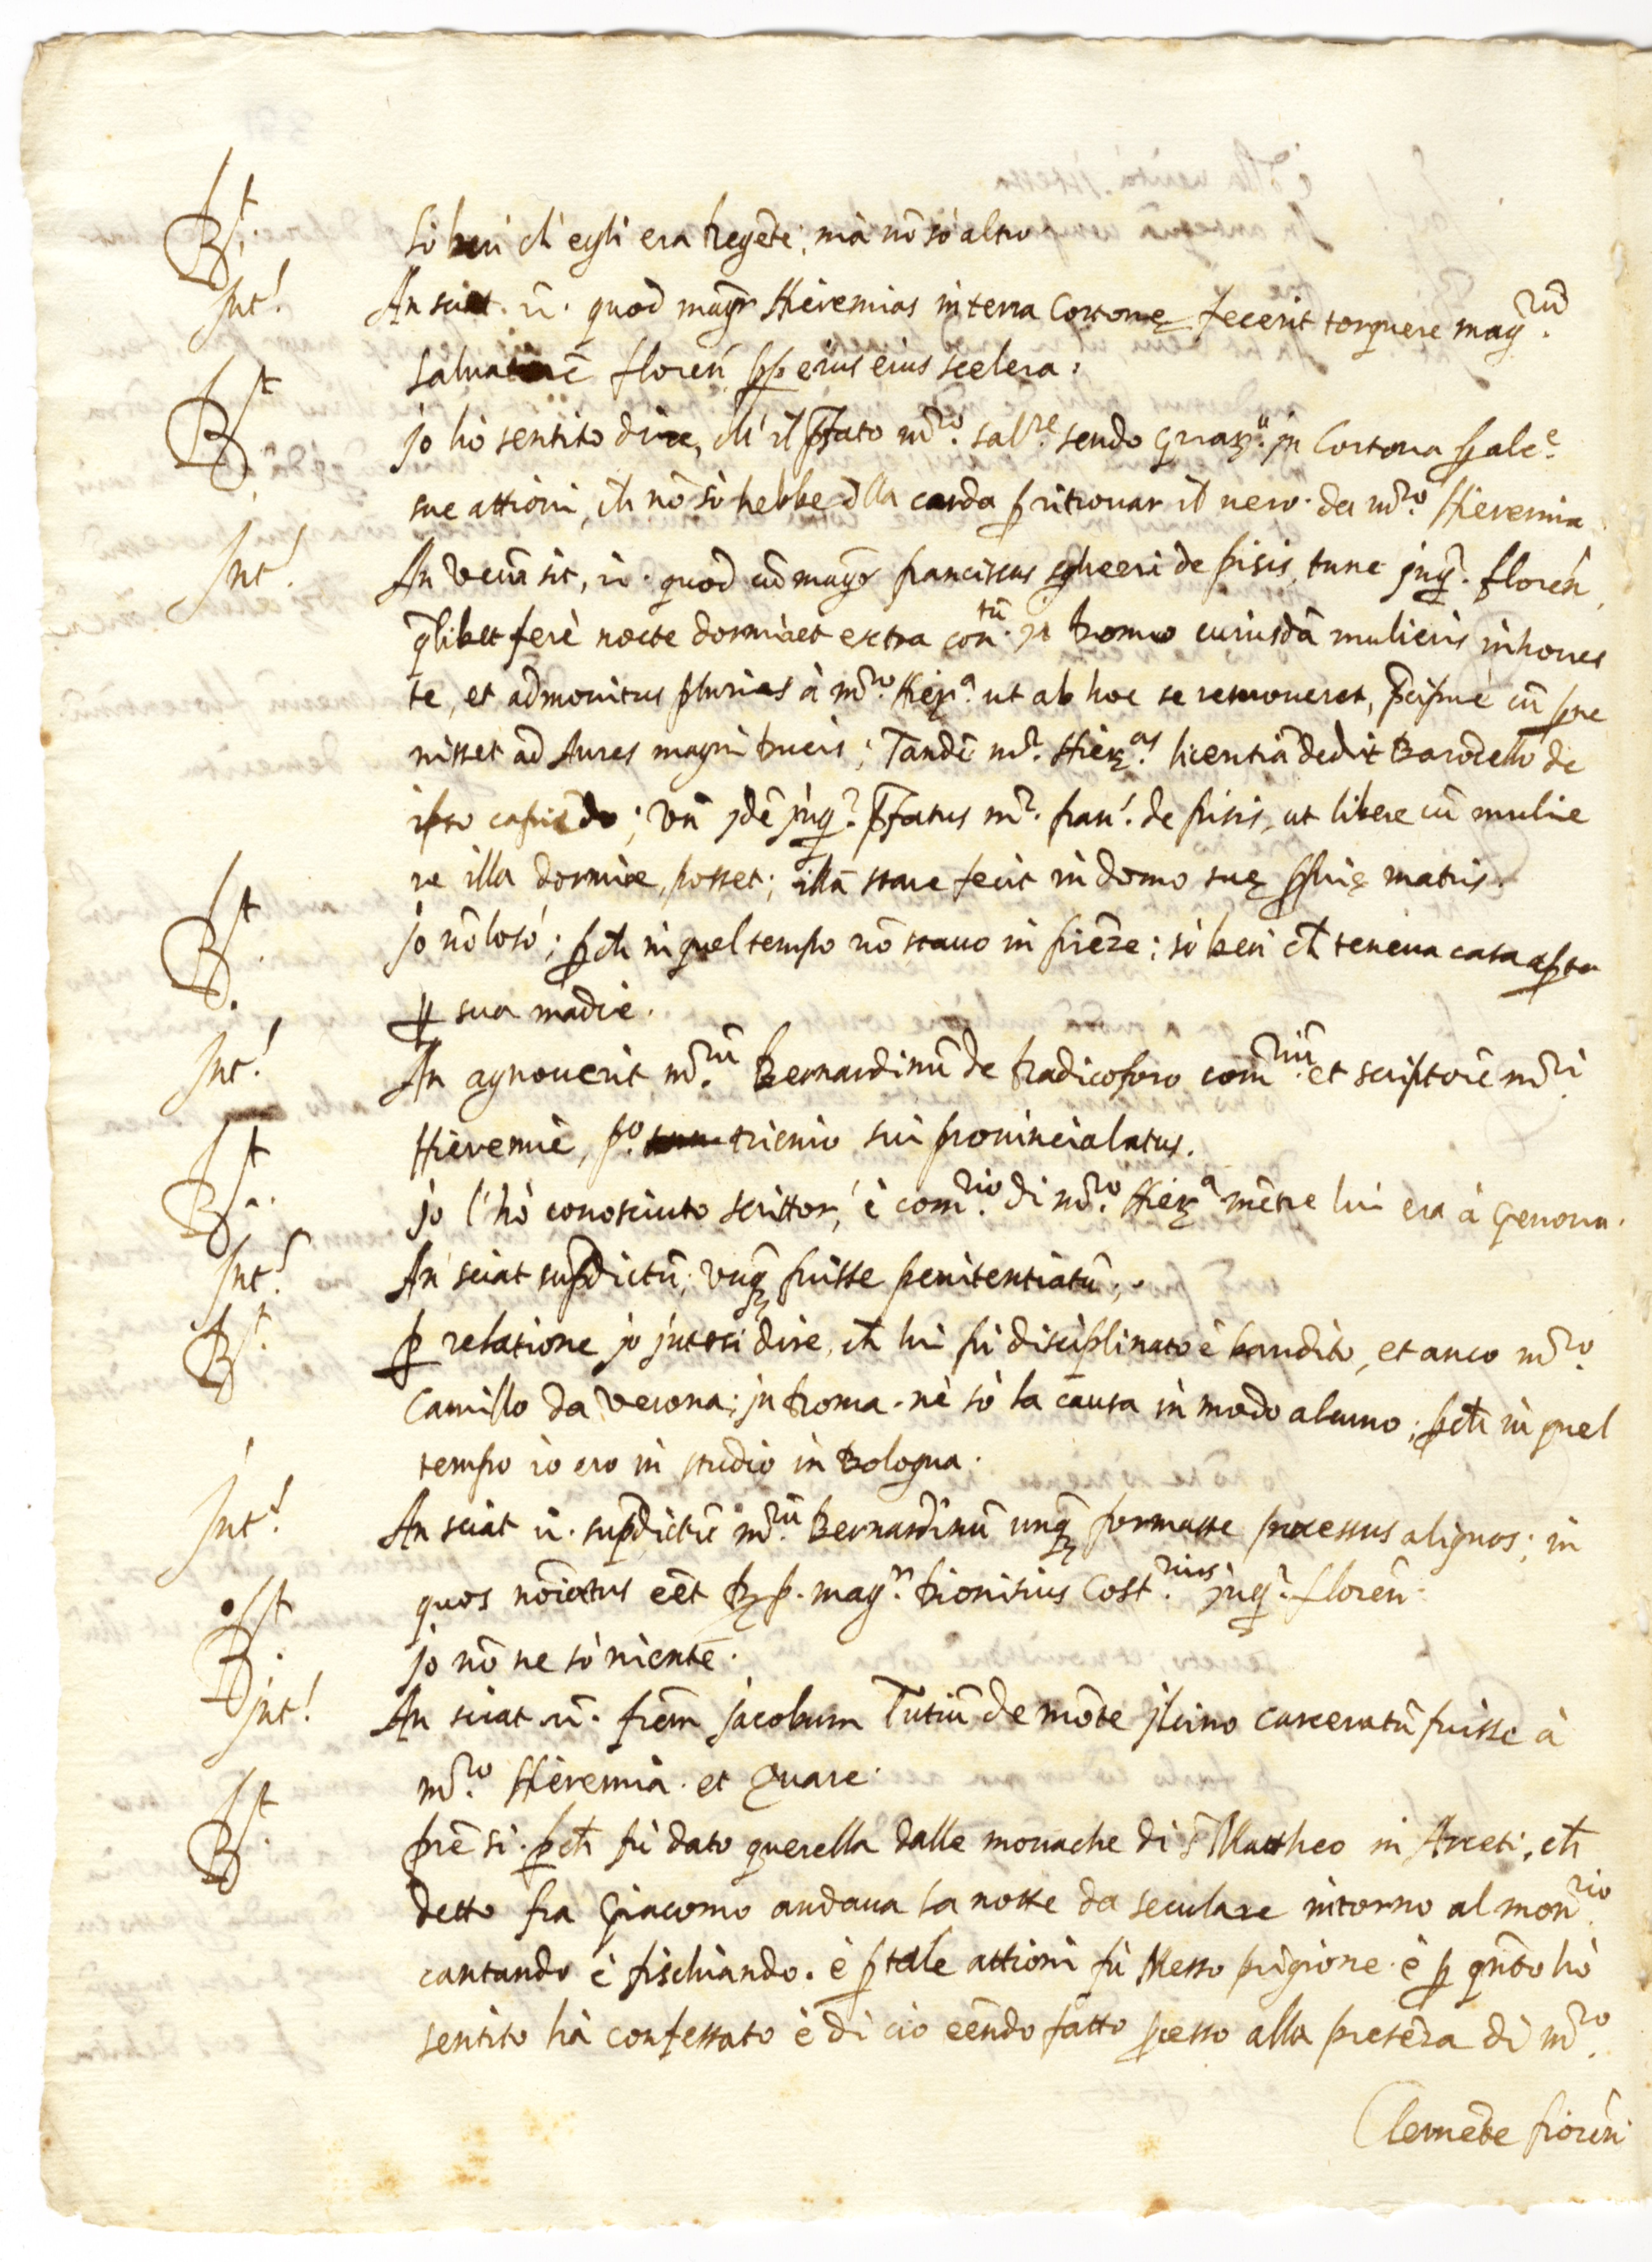 R.t so ben ch' egli era Regẽte; mà nõ sò altro
Int.! An sciat. ũ. quod magr Hieremias in terra Cortonę fecerit torquere mag.rũ
salvatorẽ floreñ. ꝓp eius eius scelera:
R.t jo hò sentito dire, ch' il p̃fato m̃ro. sal.re sendo Guar.ⁿ in Cortona ꝑ alc.e
sue attioni, ch nõ sò hebbe dlla corda ꝑ ritrovar il vero. da m̃ro. Hieremia
Int.! An verũ sit, ũ. quod cũ magr franciscus de pisis, tunc jnq̃r. floreñ.
q̃libet ferè nocte dormiret extra con.tũ in Domo cuiusdã mulieris inhones
te, et admonitus pluries à m̃ro. Hier.a ut ab hoc se removeret, p̃cipuè cũ ꝑve
nisset ad Aures magni Ducis; Tandẽ m̃r. Hier.as licentiã dedit Barocello de
ipso capiẽdo; Vñ jdẽ jnq̃r. p̃fatus m̃r. fran.! de pisis, ut libere cũ mulie
re illa dormire posset; illã stare fecit in domo suę ꝓprię matris.
R.t jo nõ lo sò; ꝑch in quel tempo nõ stavo in firẽze: sò ben ch teneva casa aꝑta
ꝑ sua madre.
Int.! An agnoverit m̃.rũ Bernardinũ de Radicofaro com̃.riũ et scriptorẽ m̃ri
Hieremiè, p.o trienio sui provincialatus.
R.t jo l'hò conosciuto scrittor, è com.rio di m̃ro. Hier.a mẽtre lui era à Genova.
Int.! An sciat sup̃dictũ; vnq̃ fuisse penitentiatũ;
R.t ꝑ relatione jo jntesi dire, ch lui fù disciplinato è bandito, et anco m̃ro.
Camillo da Verona; in Roma. nè sò la causa in modo alcuno; ꝑch in quel
tempo io ero in studio in Bologna.
Int.! An sciat ũ. sup̃dictũ m̃.rũ Bernardinũ unq̃ formasse processus aliquos; in
quos nõiatus eẽt R. p. mag.r Dionisius Cost.rius jnq̃r. floreñ.
R.t jo nõ ne sò niente.
Int.! An sciat ũ. frẽm Jacobum Tutiũ de mõte jlcino carceratũ fuisse à
m̃ro. Hieremia. et Quare.
R.t prẽ si. ꝑch fù dato querella dalle monache di S. Mattheo in Arceti, ch
detto fra Giacomo andava la notte da seculare intorno al mon.rio
cantando è fischiando. è ꝑ tale attioni fù Messo prigione. è ꝑ qñto hò
sentito hà confessato è di ciò eẽndo fatto ꝓcesso alla presẽza di m̃ro.
Clemẽte fioreñ.